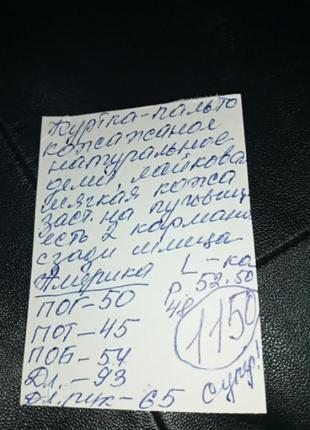 Куртка-пальто
кожажаное
натуральное
лайкова
мягкая кожа
заст. на пуговиц
есть 2 карман
сзади шлица
Америка L-ка
ПОГ-50 Р. 52.50
48
ПОТ-45 1150
ПОБ-54
Дл.-93 супр!
Дл. рук-65